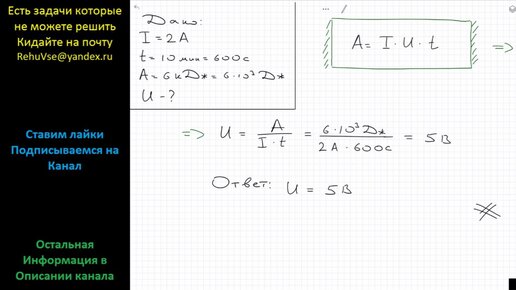 Есть задачи которые
не можете решить
Кидайте на почту
RehuVse@yandex.ru
Ставим лайки
Подписываемся на
Канал
Остальная
Информация в
Описании канала
Дано:
I = 2A
t = 10 мин = 600с
A = 6 кДж = 6·10³ Дж
U - ?
A = I · U · t
=>
=> U = A / I · t = 6·10³ Дж / 2A · 600с = 5В
Ответ: U = 5В